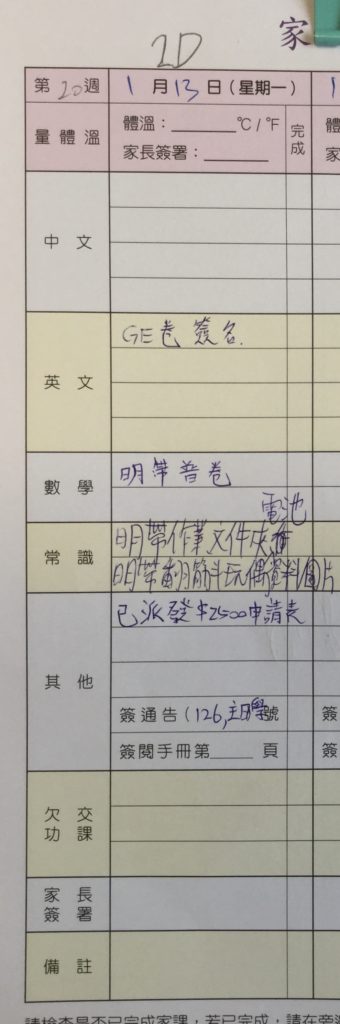 家
2D
第 20 週 1 月 13 日 (星期一) 1
量體溫 體溫：______°C / °F 完成 體
家長簽署：______ 家
中文
英文 GE卷 簽名.
數學 明帶普卷
電池
常識 明帶作業 文件夾
明帶翻筋斗玩偶資料/圖片
其他 已派發$2500申請表
簽通告 (126, 主日學號 簽
簽閱手冊第____頁 簽
欠交功課
家長簽署
備註
請檢查是否已完成家課，若已完成，請在旁